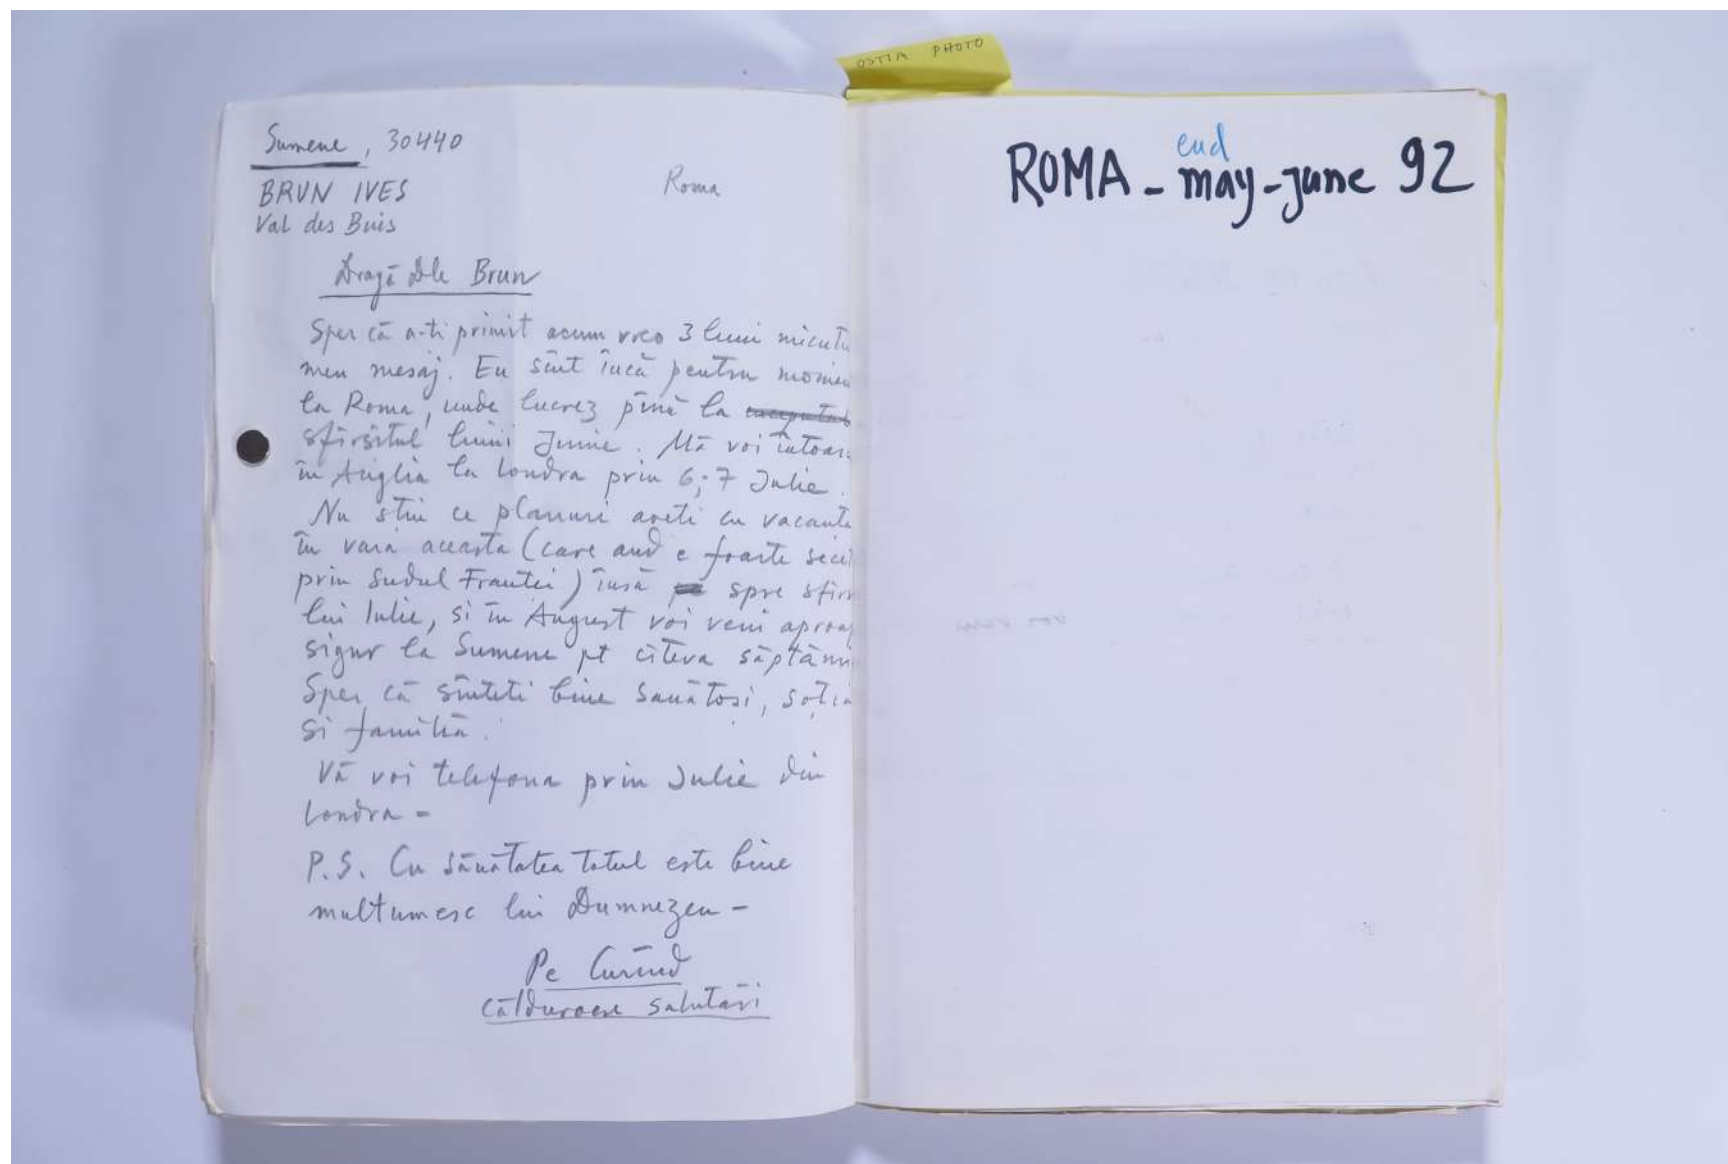 OSTIA PHOTO
Sumene, 30440
BRUN IVES
Roma
Val des Buis
Dragă Dle Brun
Sper că a-ti primit acum vreo 3 luni micutu
meu mesaj. Eu sînt încă pentru momen
la Roma, unde lucrez pînă la
sfîrsitul lunii Junie. Mă voi întoar
în Anglia la Londra prin 6;-7 Julie.
Nu stiu ce planuri aveti cu vacanta
în vara aceasta (care aud e foarte sece
prin Sudul Frantei) însă spre sfîrs
lui Iulie, si în August voi veni aproap
sigur la Sumene pt cîteva săptămî
Sper că sînteti bine sănătosi, soția
si familia.
Vă voi telefona prin Julie din
Londra -
P.S. Cu sănătatea totul este bine
multumesc lui Dumnezeu -
Pe Curînd
călduroase salutări
end
ROMA - may - june 92